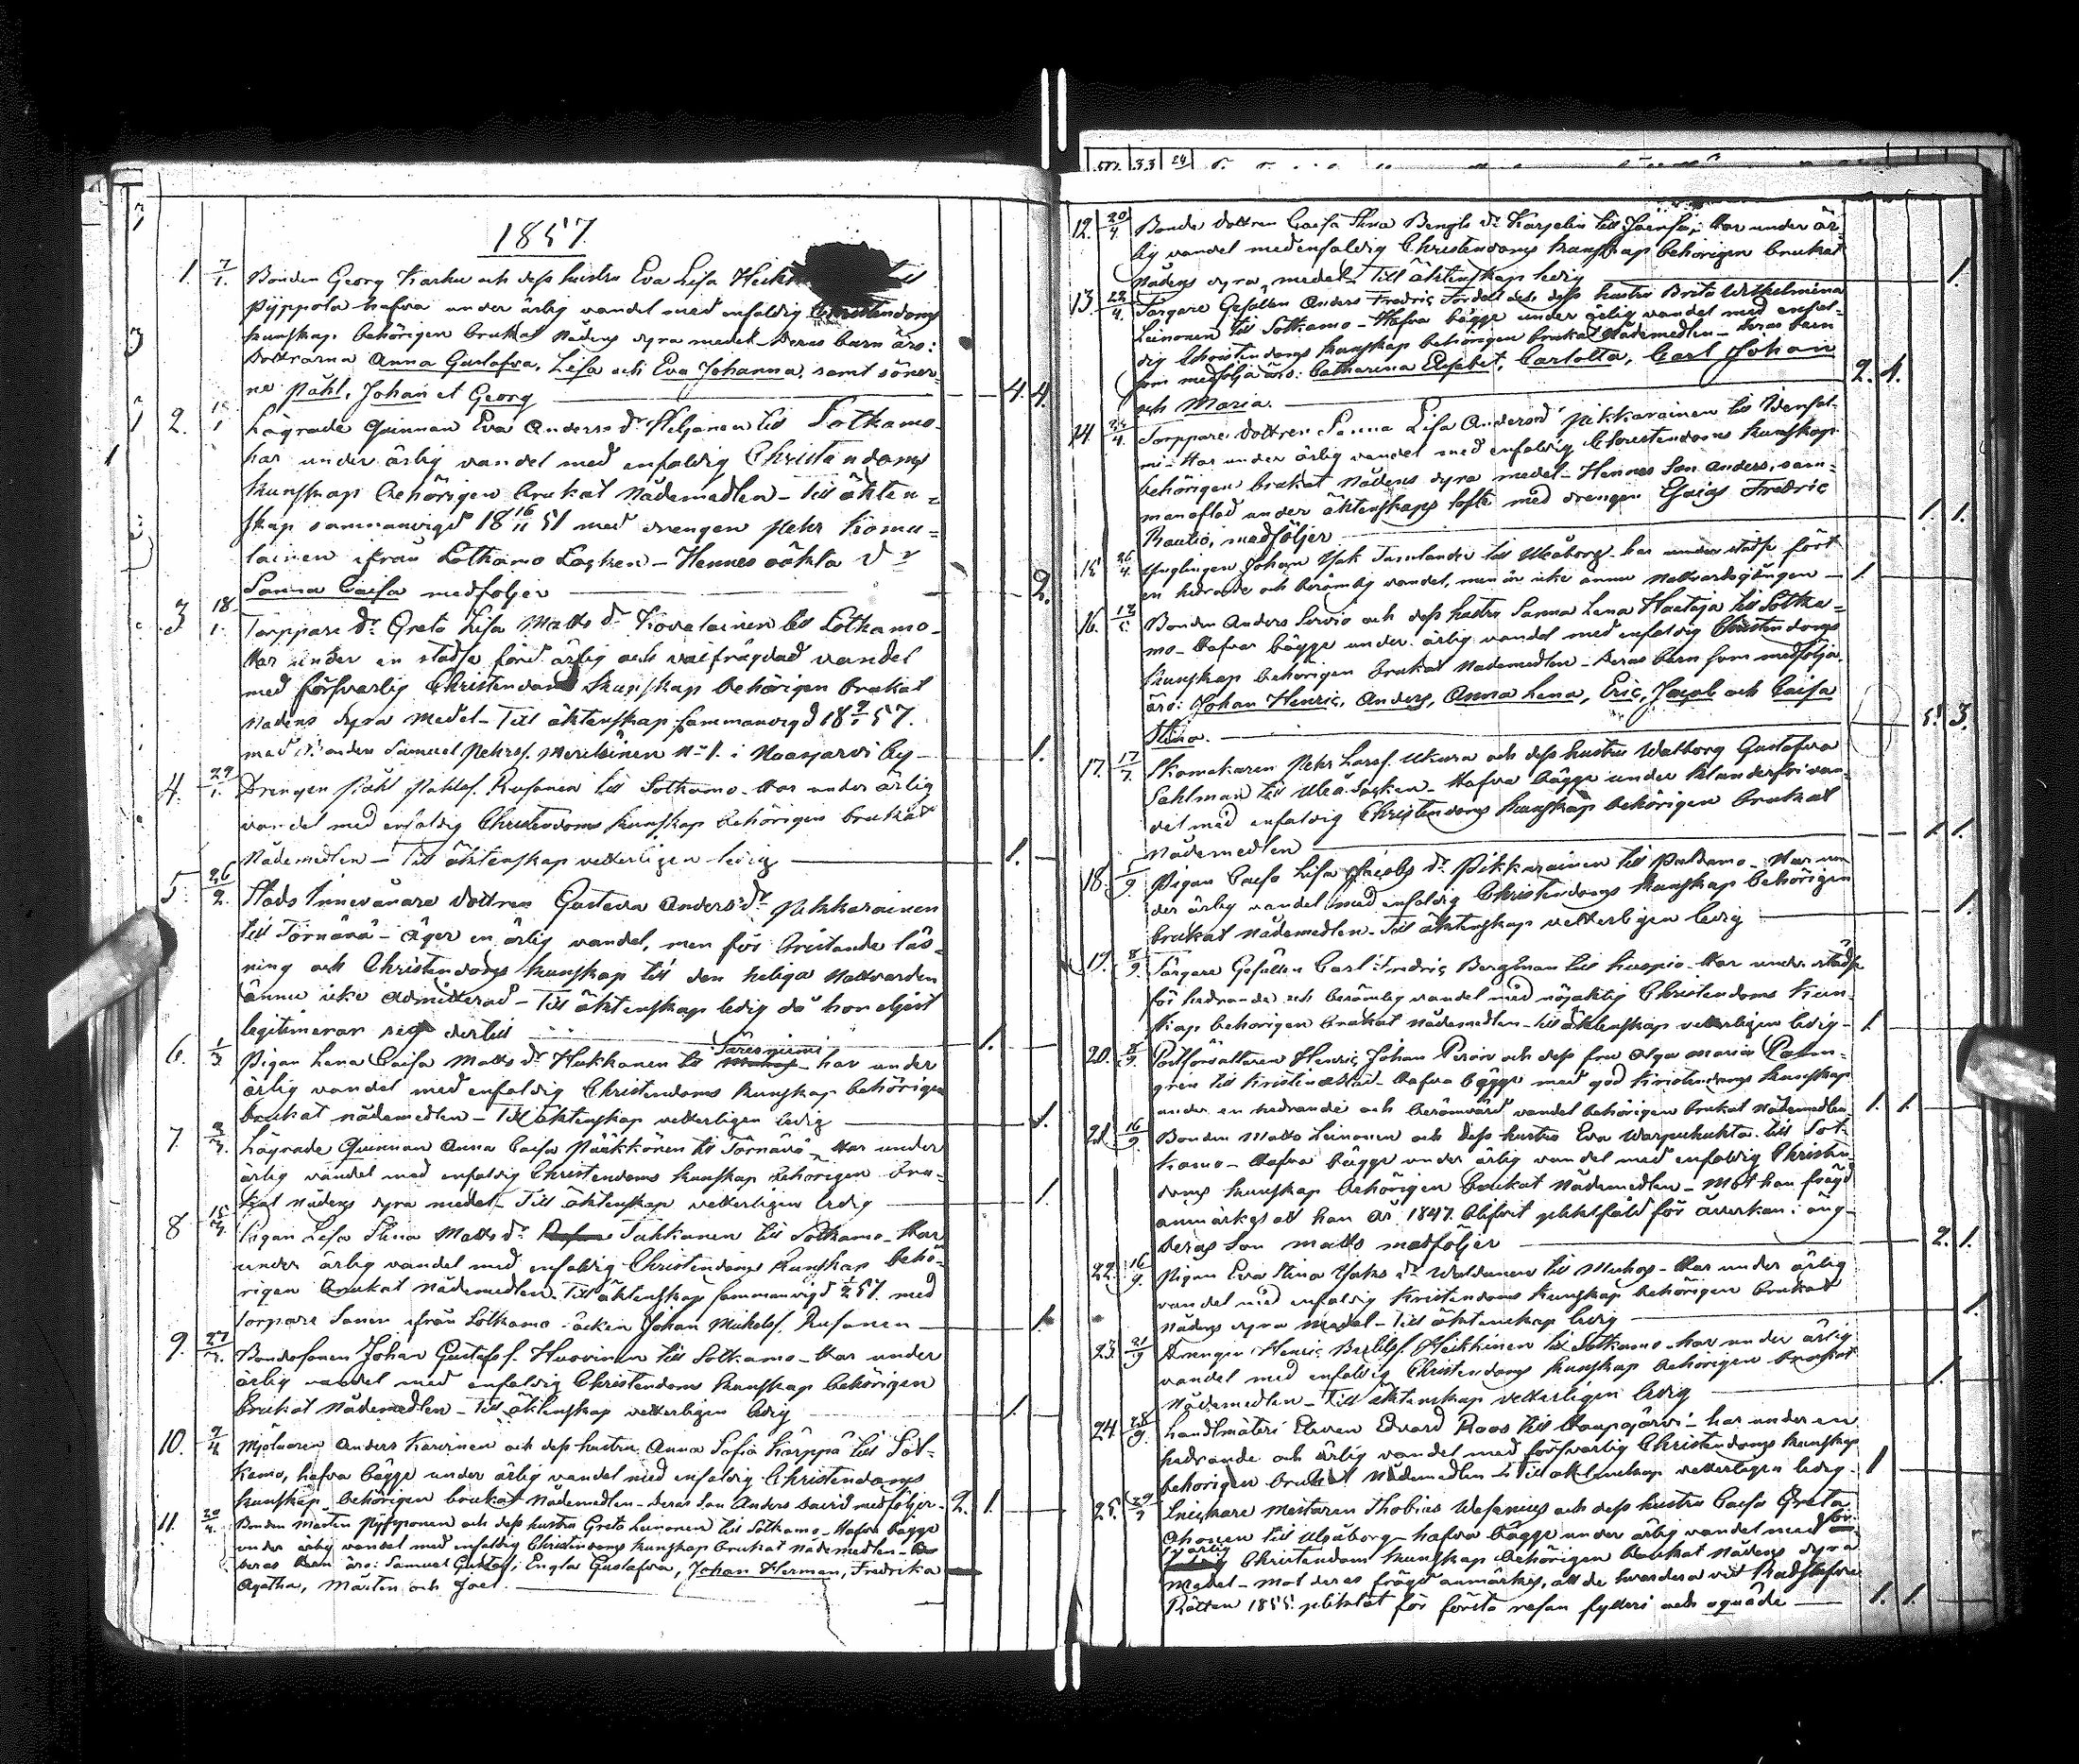 1857.
1. 7/1. Bonden Georg Karhu och dess hustru Eva Lisa
Pyppola hafva under ärlig vandel med enfaldig Christendoms
kunskap behörigen brukat Nådens dyra medel. Deras barn äro:
Döttrarna Anna Gustafva, Lisa och Eva Johanna, samt söner-
ne Påhl, Johan et Georg 4. 4.
2. Lägrade Qvinnan Eva Anders dr Heljanen till Sotkamo.
har under ärlig vandel med enfaldig Christendoms
kunskap behörigen brukat Nådemedlen - Till äkten-
skap sammanvigd 18 16/11 51 med drengen Pehr Komu-
lainen ifrån Sotkamo Socken - Hennes oäkta dr
Sanna Caisa medföljer 2.
3 18/1. Torppare dr Greta Lisa Matts dr Kovalainen till Sotkamo.
Har under en stadse förd ärlig och välfrägdad vandel
med försvarlig Christendoms kunskap behörigen brukat
Nådens dyra medel - Till äktenskap sammanvigd 57.
med Samuel Pehrss. No 1. i Naapurivaara by 1.
4. 29/1. Drengen Påhl Påhlss. Rusanen till Sotkamo. Har under ärlig
vandel med enfaldig Christendoms kunskap behörigen brukat
Nådemedlen - Till äktenskap vetterligen ledig 1.
5. 26/2. Stads Innevånare dottren Gustava Anders dr Pikkarainen
till Törnävä - Äger en ärlig vandel, men för bristande läs-
ning och Christendoms kunskap till den heliga Nattvarden
ännu icke admitterad - Till äktenskap ledig då hon eljest
legitimerar sig dertill 1.
6. 1/3 Pigan Lena Caisa Matts dr Hukkanen till Säresniemi - har under
ärlig vandel med enfaldig Christendoms kunskap behörigen
brukat nådemedlen - Till äktenskap vetterligen ledig 1.
7. Lägrade Qvinnan Anna Caisa Pääkkönen till Törnävä - Har under
ärlig vandel med enfaldig Christendoms kunskap behörigen bru-
kat Nådens dyra medel - Till äktenskap vetterligen ledig 1.
8 15/3. Pigan Lisa Stina Matts dr Tahkanen till Sotkamo - Har
under ärlig vandel med enfaldig Christendoms kunskap behö-
rigen brukat Nådemedlen. Till äktenskap sammanvigd 57. med
torpare Sonen ifrån Sotkamo Socken Johan Mickelss. Rusanen 1.
9. 27/3. Bondesonen Johan Gustafss. Huovinen till Sotkamo - Har under
ärlig vandel med enfaldig Christendoms kunskap behörigen
brukat Nådemedlen - Till äktenskap vetterligen ledig 1.
10. 9/4 Mjölnaren Anders Karvinen och dess hustru Anna Sofia Kärppä till Sot-
kamo, hafva bägge under ärlig vandel med enfaldig Christendoms
kunskap behörigen brukat Nådemedlen - Deras Son Anders David medföljer. 2. 1.
11. 20/4. Bonden Mårten Pyykkönen och dess hustru Greta Leinonen till Sotkamo - Hafva bägge
under ärlig vandel med enfaldig Christendoms kunskap brukat Nådemedlen -
Deras barn äro: Samuel Gustaf, Engla Gustafva, Johan Herman, Fredrika
Agatha, Mårten och Joel.
12. 20/4. Bonde dottren Caisa Stina Bengts dr Karjelin till Har under är-
lig vandel med enfaldig Christendoms kunskap behörigen brukat
Nådens dyra medel - Till äktenskap ledig 1.
13. Färgare Gesällen Anders Fredric dess hustru Brita Wilhelmina
Leinonen till Sotkamo - Hafva bägge under ärlig vandel med enfal-
dig Christendoms kunskap behörigen brukat Nådemedlen - deras barn
som medfölja äro: Catharina Elisabet, Carlotta, Carl Johan
och Maria. 2. 4.
14. Torppare dottren Sanna Lisa Anders dr Pikkarainen till Idensal-
mi - Har under ärlig vandel med enfaldig Christendoms kunskap
behörigen brukat Nådens dyra medel - Hennes Son Anders, sam-
manaflad under äktenskaps löfte med drengen Esaias Fredric
Rautio, medföljer 1. 1.
15 26/4. Ynglingen Johan Isak Tamlander till Uleåborg. har under stadse fört
en hedrande och berömlig vandel, men är icke ännu Nattvardsgången 1.
16. Bonden Anders Servio och dess hustru Sanna Lena Haataja till Sotka-
mo - Hafva bägge under ärlig vandel med enfaldig Christendoms
kunskap behörigen brukat Nådemedlen - Deras barn som medfölja
äro: Johan Henric, Anders, Anna Lena, Eric, Jacob och Caisa
Stina. 5. 3.
17. 17/7. Skomakaren Pehr Larss. Ukura och dess hustru Walborg Gustafva
Sahlman till Uleå Socken - Hafva bägge under klanderfri van-
del med enfaldig Christendoms kunskap behörigen brukat
Nådemedlen 1. 1.
18. 1/9. Pigan Caisa Lisa Jacobs dr Pikkarainen till Paldamo - Har un-
der ärlig vandel med enfaldig Christendoms kunskap behörigen
brukat Nådemedlen - Till äktenskap vetterligen ledig 1.
19. 8/9. Färgare Gesällen Carl Fredric Bergman till Kuopio - Har under stadse
för hedrande och berömlig vandel med nöjaktig Christendoms kun-
skap behörigen brukat Nådemedlen - till äktenskap vetterligen ledig - 1.
20. 8/9. Postförvaltaren Henric Johan Perón och dess fru Olga Maria Palm-
gren till Kristinestad - Hafva bägge med god Kristendoms kunskap
under en hedrande och berömvärd vandel behörigen brukat Nådemedlen. 1. 1.
21. 16/9. Bonden Matts Leinonen och dess hustru Eva Warpuhuhta till Sot-
kamo - Hafva bägge under ärlig vandel med enfaldig Christen-
doms kunskap behörigen brukat Nådemedlen - Mot han frägd
anmärkes att han år 1847. blifvit pliktfäld för åverkan:
Deras Son Matts medföljer 2. 1.
22. 16/9. Pigan Eva Stina Isaks dr till Muhos - Har under ärlig
vandel med enfaldig Kristendoms kunskap behörigen brukat
Nådens dyra medel - till äktenskap ledig 1.
23. 21/9 Drengen Henric Heikkinen till Sotkamo - har under ärlig
vandel med enfaldig Christendoms kunskap behörigen brukat
Nådemedlen - Till äktenskap vetterligen ledig 1.
24. 28/9. Landtmäteri Eleven Edvard Roos till Haapajärvi - har under en
hedrande och ärlig vandel med försvarlig Christendoms kunskap
behörigen brukat Nådemedlen - Till äktenskap vetterligen ledig - 1
25. 29/9 Snickare Mästaren Thobias Wesenius och dess hustru Caisa Greta
Ahonen till Uleåborg - hafva bägge under ärlig vandel med för-
svarlig Christendom kunskap behörigen brukat Nådens dyra
medel - Mot deras frägd anmärkes, att de hvardera vid Rådstufvu
Rätten 1855. pliktat för första resan fylleri och oqväde 1. 1.